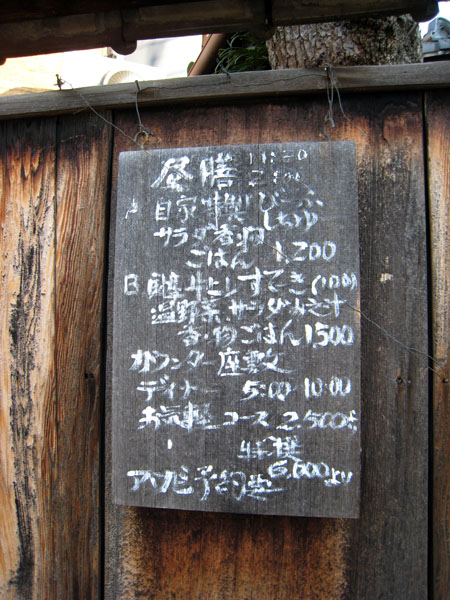 昼膳 11:30
2:00
A 自家特製 びーふ
しちゅー
サラダ 香物
ごはん 1,200
B 牛ヒレ すてき(100g)
温野菜 サラダ みそ汁
香の物 ごはん 1,500
カウンター 座敷
ディナー 5:00-10:00
お気軽 コース 2,500より
予約 6,000より